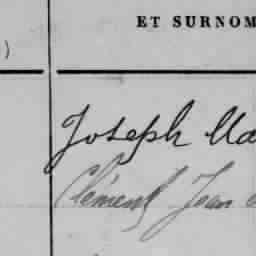 ET SURNOM
)
Joseph Ma
Clément Jean